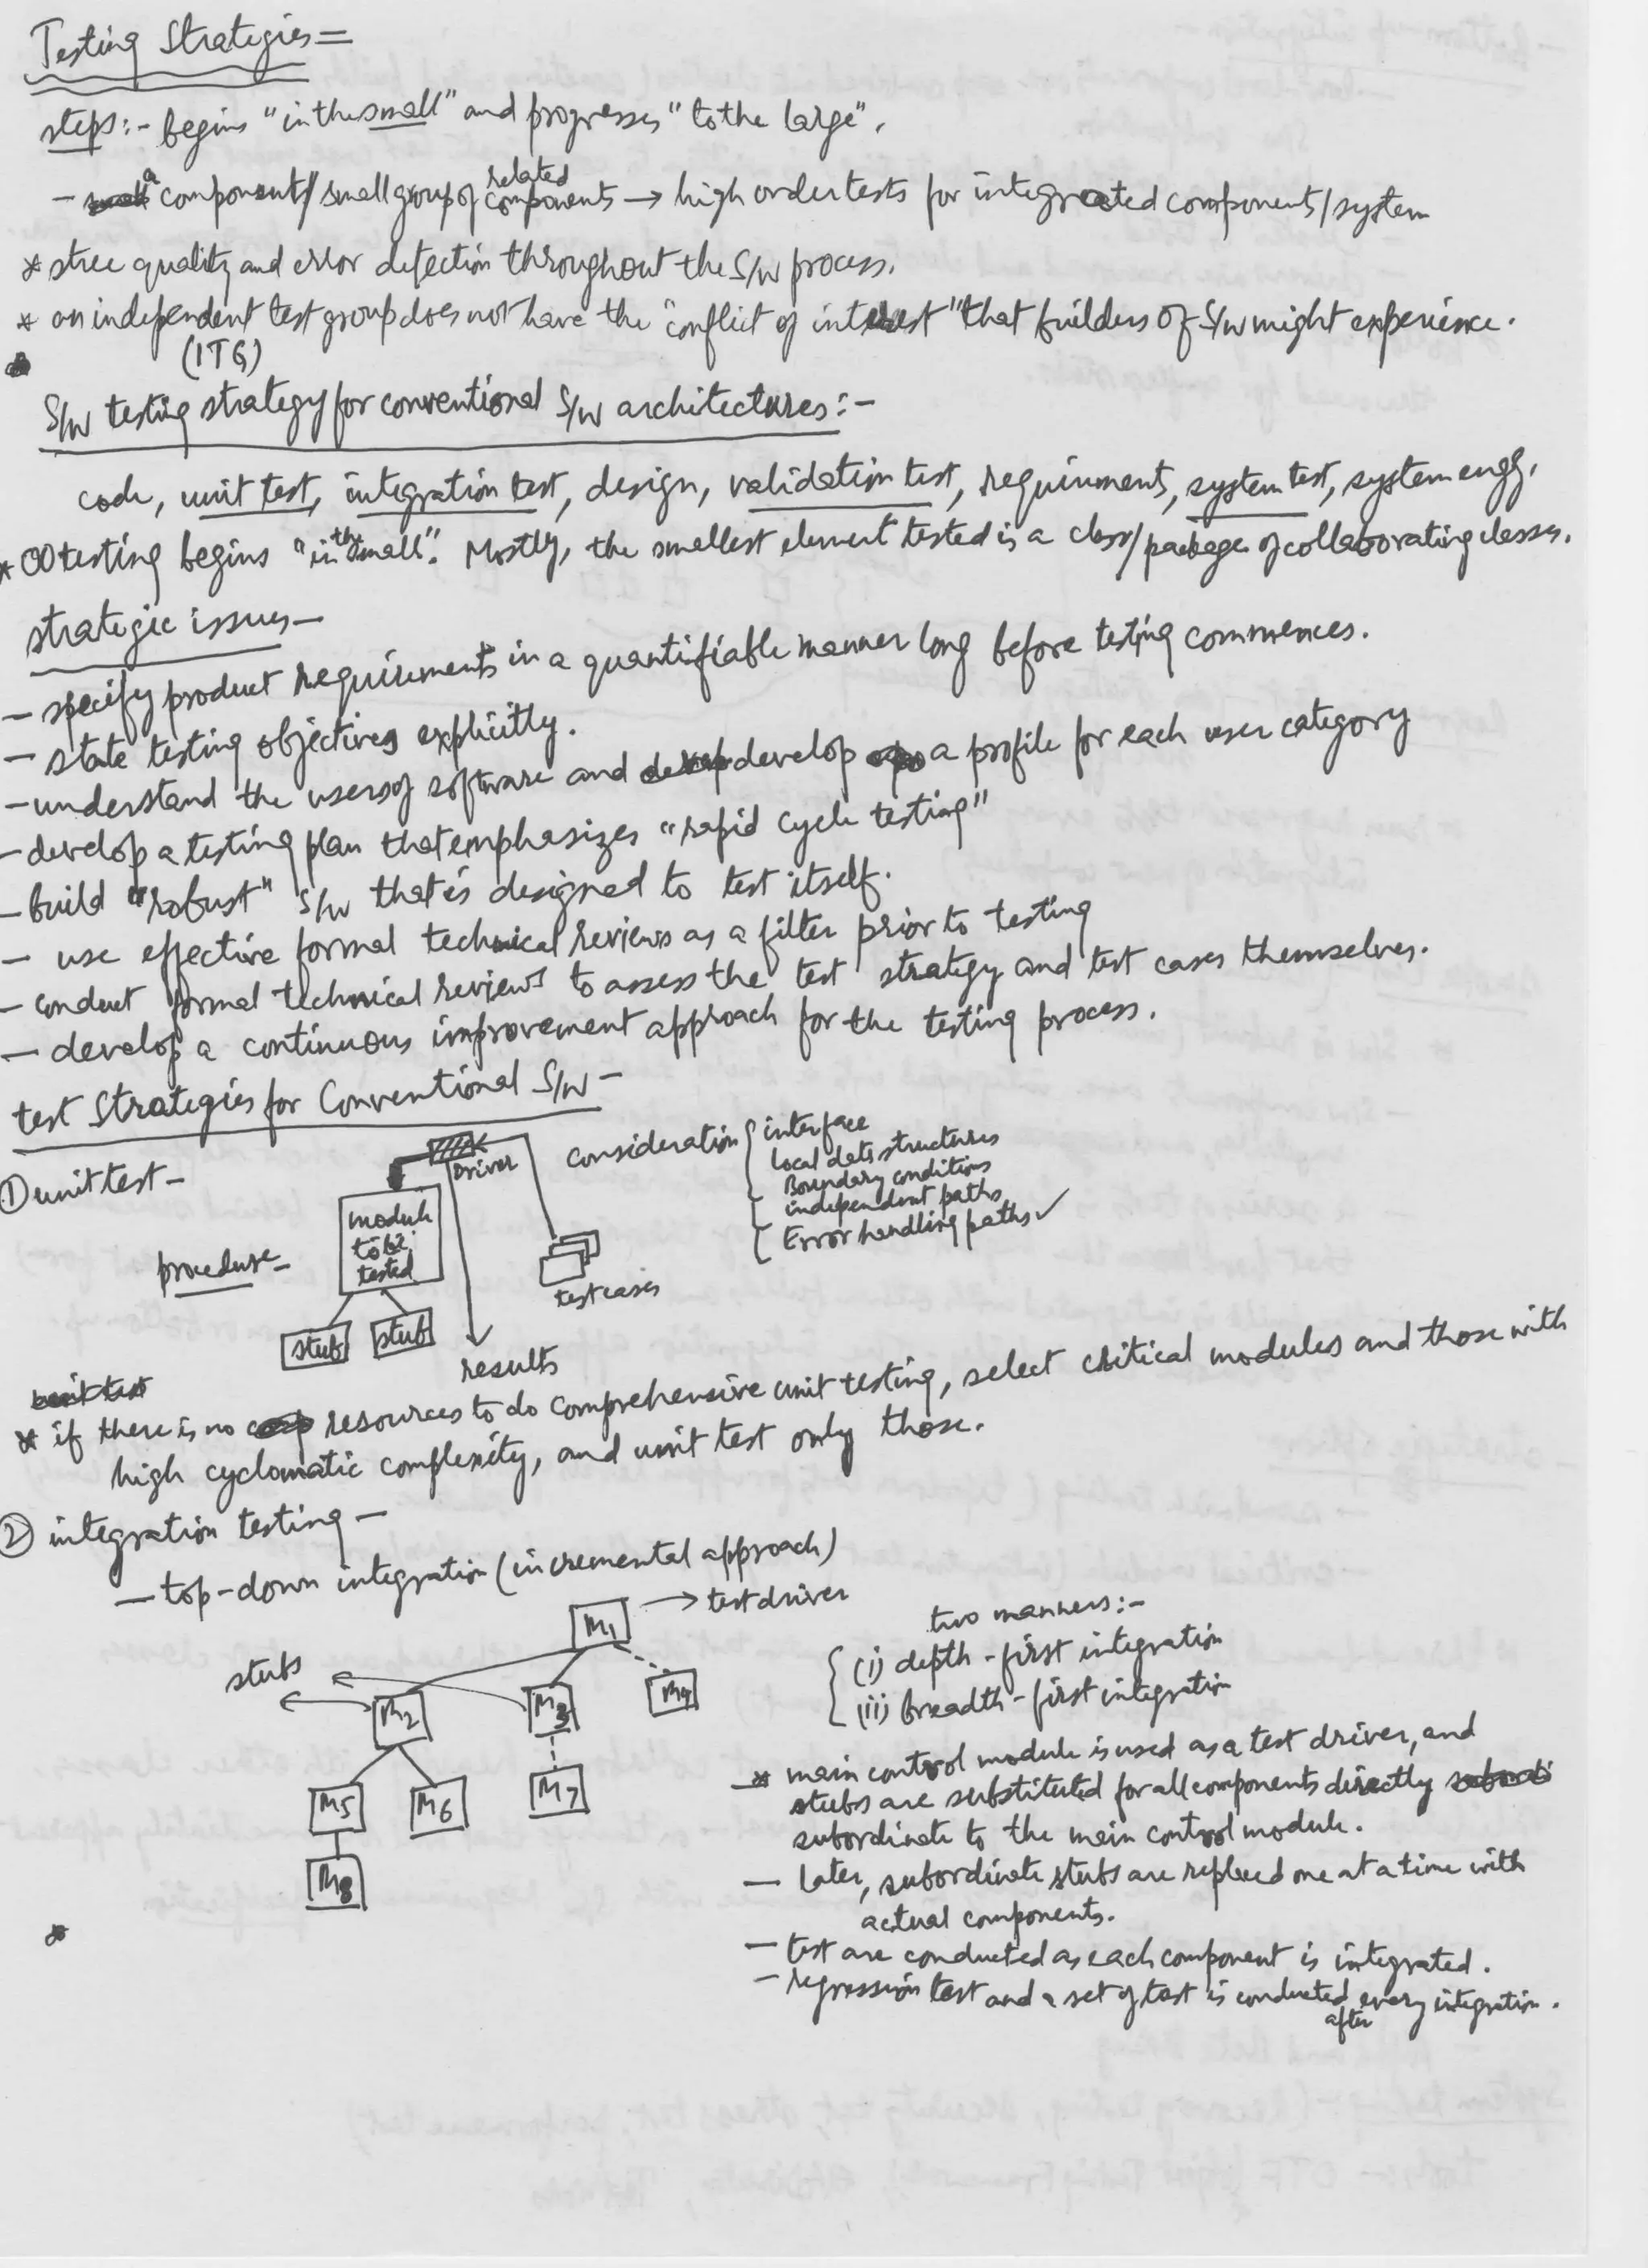 Testing Strategies =
steps:- begins "in the small" and progresses "to the large".
- a component/small group of related components → high order tests for integrated components/system
* stree quality and error detection throughout the S/W process.
* an independent test group does not have the "conflict of interest" that builders of S/W might experience.
(ITG)
S/W testing strategy for conventional S/W architectures:-
code, unit test, integration test, design, validation test, requirements, system test, system engg.
* OO testing begins "in the small". Mostly, the smallest element tested is a class/packages of collaborating classes.
strategic issues -
- specify product requirements in a quantifiable manner long before testing commences.
- state testing objectives explicitly.
- understand the users of software and develop a profile for each user category
- develop a testing plan that emphasizes "rapid cycle testing"
- build "robust" S/W that is designed to test itself.
- use effective formal technical reviews as a filter prior to testing
- conduct formal technical reviews to assess the test strategy and test cases themselves.
- develop a continuous improvement approach for the testing process.
test Strategies for Conventional S/W -
① unit test -
Driver
module
to be
tested
stub
stub
results
test cases
procedure -
consideration
interface
Local data structures
Boundary conditions
independent paths
Error handling paths ✓
* if there is no resources to do comprehensive unit testing, select critical modules and those with
high cyclomatic complexity, and unit test only those.
② integration testing -
- top-down integration (incremental approach)
M1 → test driver
stubs
M2
M3
M4
M5
M6
M7
M8
two manners:-
(i) depth-first integration
(ii) breadth-first integration
* main control module is used as a test driver, and
stubs are substituted for all components directly
subordinate to the main control module.
- Later, subordinate stubs are replaced one at a time with
actual components.
- test are conducted as each component is integrated.
- regression test and a set of test is conducted after every integration.